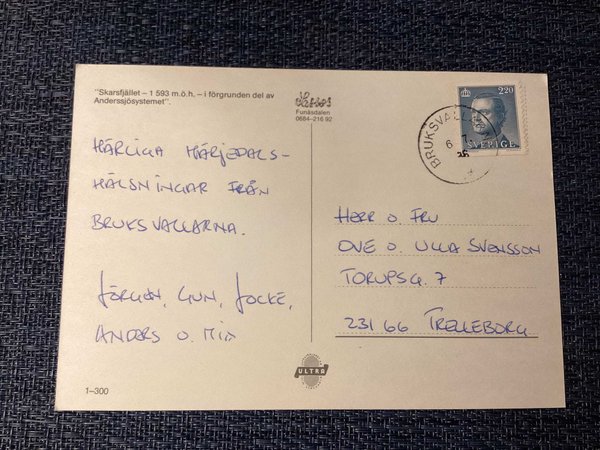 "Skarsfjället – 1 593 m.ö.h. – i förgrunden del av
Anderssjösystemet".
Funäsdalen
0684-216 92
2.20
SVERIGE
BRUKSVALL
6
HÄRLIGA HÄRJEDALS-
HÄLSNINGAR FRÅN
BRUKSVALLARNA.
JÖRGEN, GUN, JOCKE,
ANDERS O. MIA
HERR O. FRU
OVE O. ULLA SVENSSON
TORUPSG. 7
231 66 TRELLEBORG
ULTRA
1–300